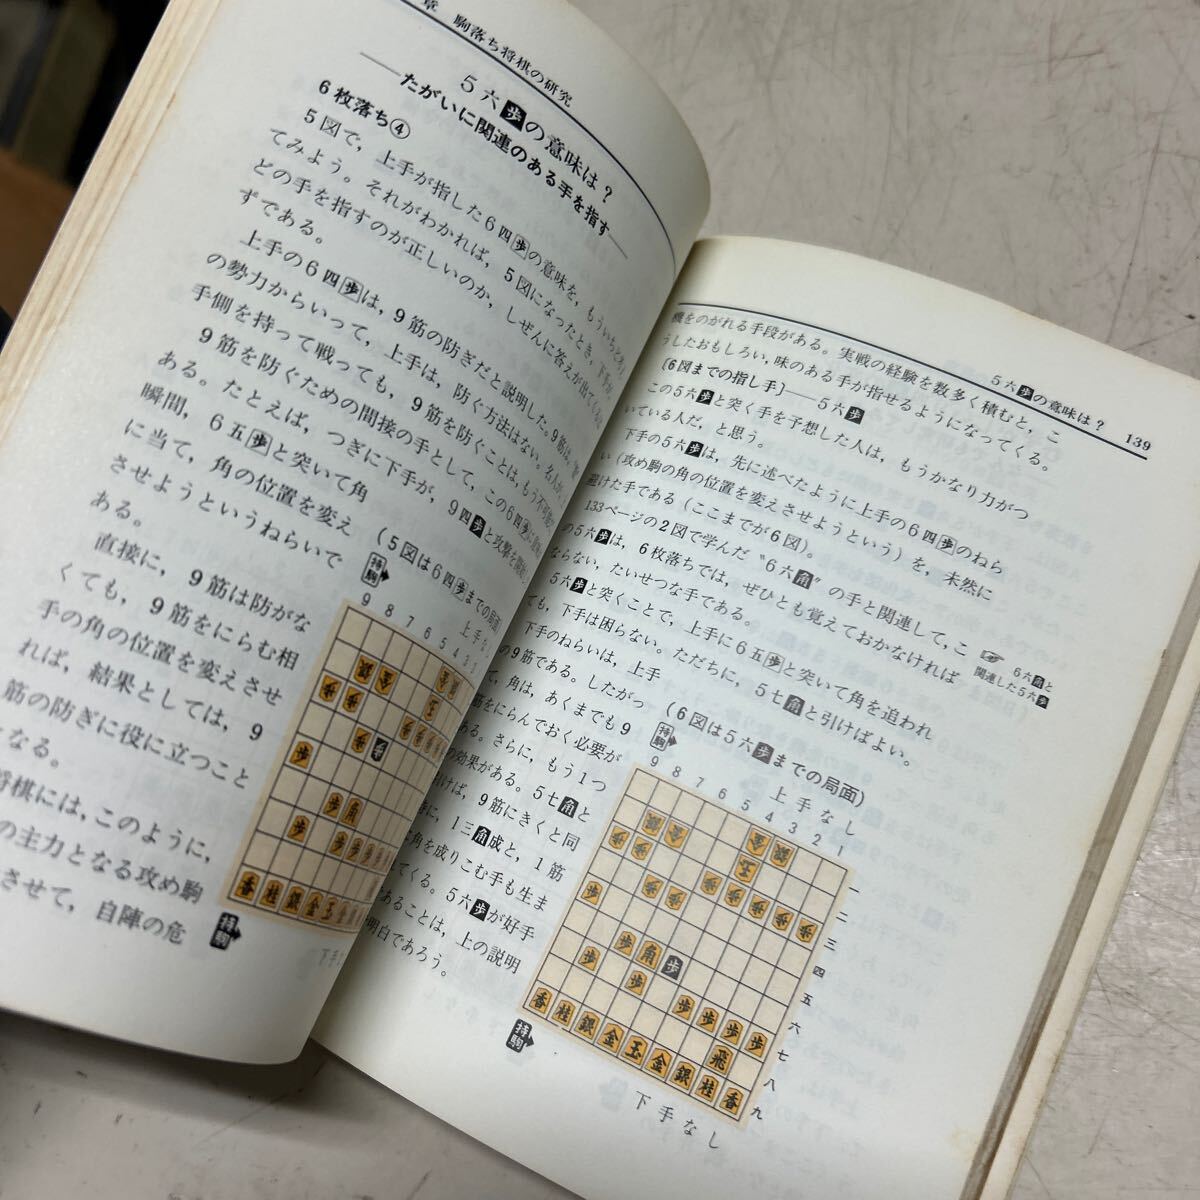 章 駒落ち将棋の研究
5六歩の意味は?
――たがいに関連のある手を指す――
6枚落ち④
5図で，上手が指した6四歩の意味を，もういちど考え
てみよう。それがわかれば，5図になったとき，下手が，
どの手を指すのが正しいのか，しぜんに答えが出てくるは
ずである。
上手の6四歩は，9筋の防ぎだと説明した。9筋は，
の勢力からいって，上手は，防ぐ方法はない。名人が
手側を持って戦っても，9筋を防ぐことは，もう不可能
9筋を防ぐための間接の手として，この6四歩に
ある。たとえば，つぎに下手が，9四歩と攻撃を開始
瞬間，6五歩と突いて角
に当て，角の位置を変え
させようというねらいで
ある。
直接に，9筋は防がな
くても，9筋をにらむ相
手の角の位置を変えさせ
れば，結果としては，9
筋の防ぎに役に立つこと
となる。
将棋には，このように，
の主力となる攻め駒
させて，自陣の危
(5図は6四歩までの局面)
上手なし
持駒
9 8 7 6 5 4 3 2 1
持駒
下手な
5六歩の意味は? 139
機をのがれる手段がある。実戦の経験を数多く積むと，こ
うしたおもしろい，味のある手が指せるようになってくる。
〔6図までの指し手〕――5六歩
この5六歩と突く手を予想した人は，もうかなり力がつ
いている人だ，と思う。
下手の5六歩は，先に述べたように上手の6四歩のねら
い（攻め駒の角の位置を変えさせようという）を，未然に
避けた手である（ここまでが6図）。
133ページの2図で学んだ“6六角”の手と関連して，こ
の5六歩は，6枚落ちでは，ぜひとも覚えておかなければ
ならない，たいせつな手である。
5六歩と突くことで，上手に6五歩と突いて角を追われ
ても，下手は困らない。ただちに，5七角と引けばよい。
下手のねらいは，上手
の9筋である。したがっ
て，角は，あくまでも9
筋をにらんでおく必要が
ある。さらに，もう1つ
の効果がある。5七角と
引けば，9筋にきくと同
時に，1三角成と，1筋
に角を成りこむ手も生ま
れてくる。5六歩が好手
であることは，上の説明
で明白であろう。
☞ 6六角と
関連した5六歩
(6図は5六歩までの局面)
上手なし
持駒
9 8 7 6 5 4 3 2 1
一
二
三
四
五
六
七
八
九
香桂銀金玉金銀桂香
持駒
下手なし